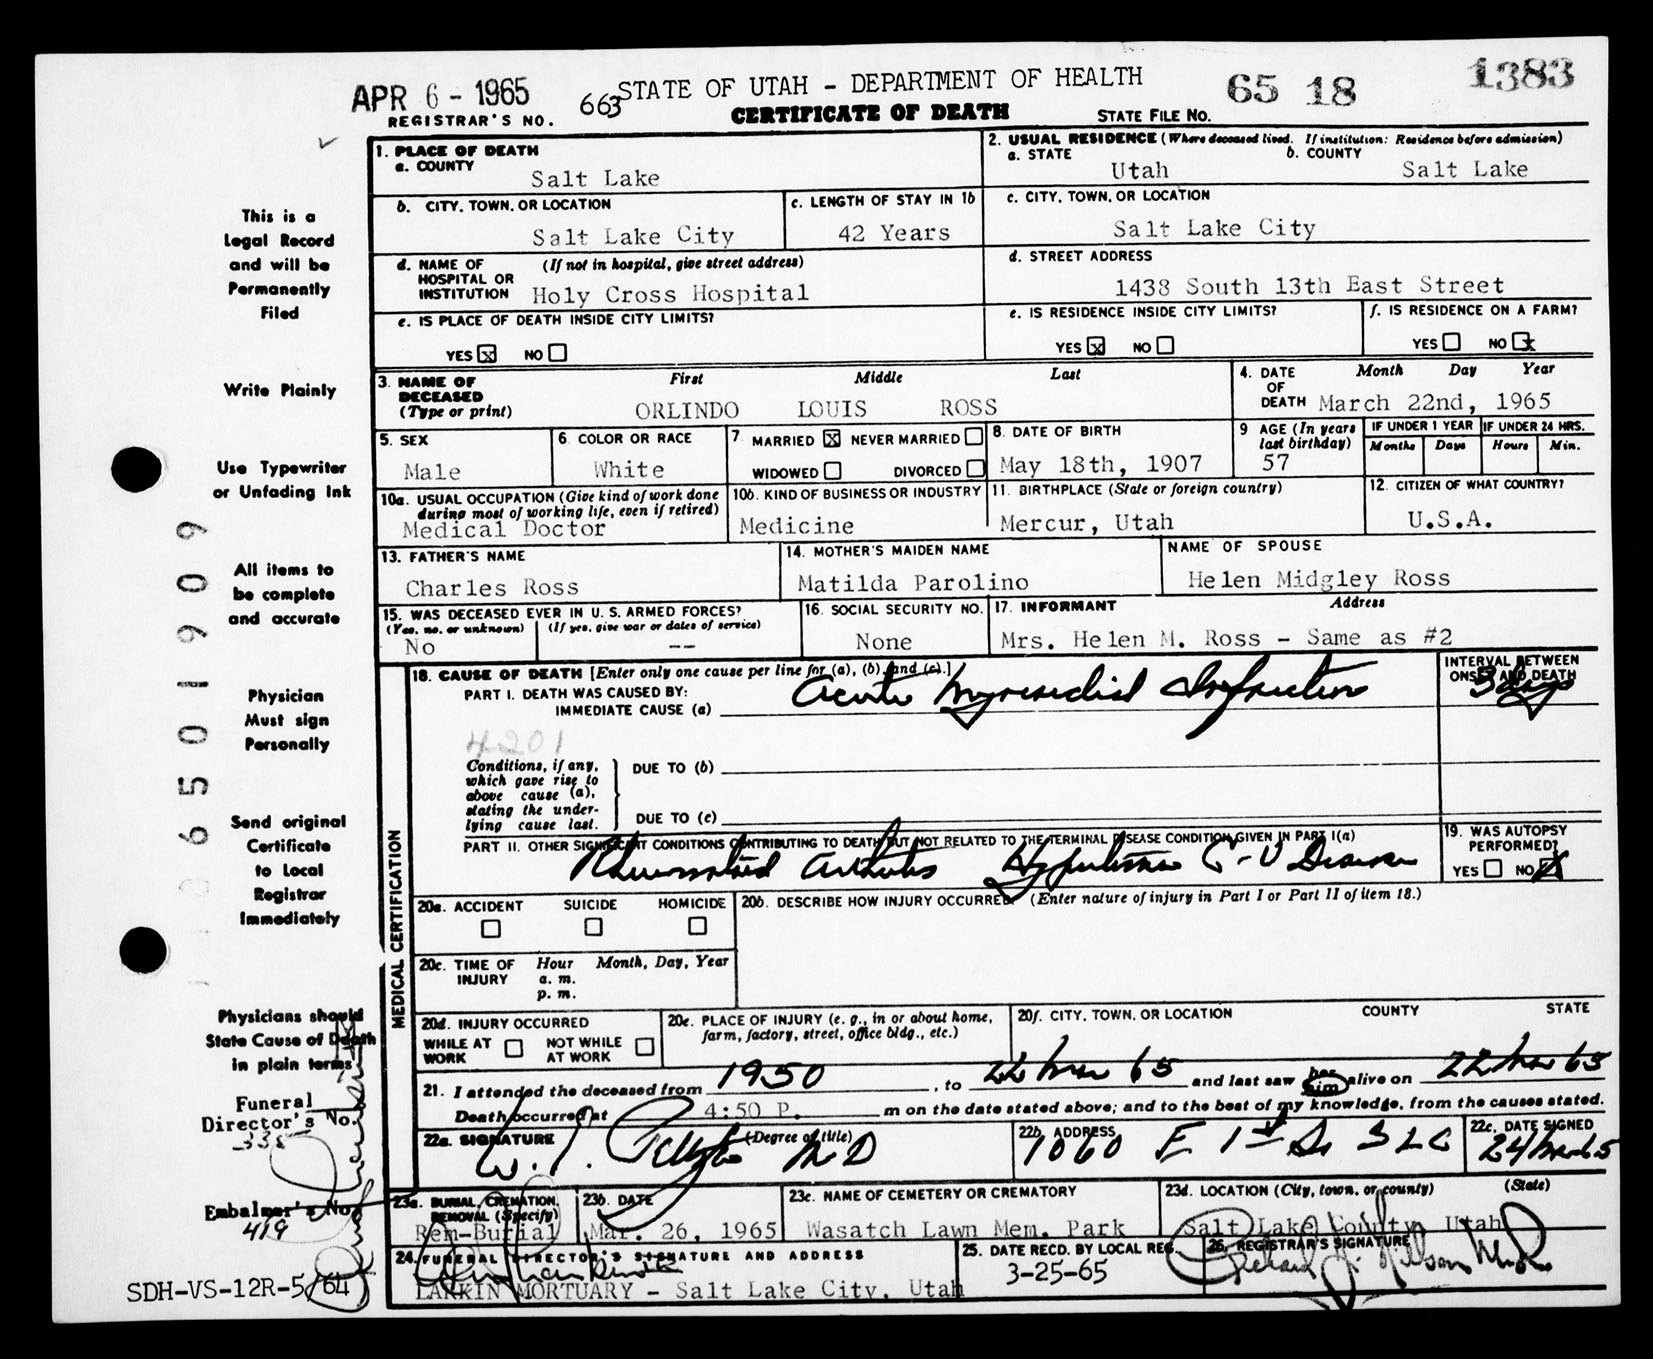 APR 6 - 1965
REGISTRAR'S NO. 663
STATE OF UTAH - DEPARTMENT OF HEALTH
CERTIFICATE OF DEATH
STATE FILE NO. 65 18 1383
This is a
Legal Record
and will be
Permanently
Filed
Write Plainly
Use Typewriter
or Unfading Ink
All items to
be complete
and accurate
Physician
Must sign
Personally
Send original
Certificate
to Local
Registrar
Immediately
Physicians should
State Cause of Death
in plain terms
Funeral
Director's No.
338
Embalmer's No.
419
SDH-VS-12R-5/64
6501909
1. PLACE OF DEATH
a. COUNTY
Salt Lake
2. USUAL RESIDENCE (Where deceased lived. If institution: Residence before admission)
a. STATE Utah b. COUNTY Salt Lake
b. CITY, TOWN, OR LOCATION
Salt Lake City
c. LENGTH OF STAY IN 1b
42 Years
c. CITY, TOWN, OR LOCATION
Salt Lake City
d. NAME OF HOSPITAL OR INSTITUTION (If not in hospital, give street address)
Holy Cross Hospital
d. STREET ADDRESS
1438 South 13th East Street
e. IS PLACE OF DEATH INSIDE CITY LIMITS?
YES x NO
e. IS RESIDENCE INSIDE CITY LIMITS?
YES x NO
f. IS RESIDENCE ON A FARM?
YES NO x
3. NAME OF DECEASED (Type or print) First Middle Last
ORLINDO LOUIS ROSS
4. DATE OF DEATH Month Day Year
March 22nd, 1965
5. SEX
Male
6. COLOR OR RACE
White
7 MARRIED x NEVER MARRIED
WIDOWED DIVORCED
8. DATE OF BIRTH
May 18th, 1907
9 AGE (In years last birthday)
57
IF UNDER 1 YEAR
Months Days
IF UNDER 24 HRS.
Hours Min.
10a. USUAL OCCUPATION (Give kind of work done during most of working life, even if retired)
Medical Doctor
10b. KIND OF BUSINESS OR INDUSTRY
Medicine
11. BIRTHPLACE (State or foreign country)
Mercur, Utah
12. CITIZEN OF WHAT COUNTRY?
U.S.A.
13. FATHER'S NAME
Charles Ross
14. MOTHER'S MAIDEN NAME
Matilda Parolino
NAME OF SPOUSE
Helen Midgley Ross
15. WAS DECEASED EVER IN U. S. ARMED FORCES?
(Yes, no, or unknown) (If yes, give war or dates of service)
No --
16. SOCIAL SECURITY NO.
None
17. INFORMANT Address
Mrs. Helen M. Ross - Same as #2
MEDICAL CERTIFICATION
18. CAUSE OF DEATH [Enter only one cause per line for (a), (b), and (c).]
PART I. DEATH WAS CAUSED BY:
IMMEDIATE CAUSE (a) Acute Myocardial Infarction
INTERVAL BETWEEN ONSET AND DEATH
3 days
4201
Conditions, if any, which gave rise to above cause (a), stating the underlying cause last.
DUE TO (b)
DUE TO (c)
PART II. OTHER SIGNIFICANT CONDITIONS CONTRIBUTING TO DEATH BUT NOT RELATED TO THE TERMINAL DISEASE CONDITION GIVEN IN PART I(a)
Rheumatoid Arthritis Hypertensive C-V Disease
19. WAS AUTOPSY PERFORMED?
YES NO x
20a. ACCIDENT SUICIDE HOMICIDE
20b. DESCRIBE HOW INJURY OCCURRED. (Enter nature of injury in Part I or Part II of item 18.)
20c. TIME OF INJURY Hour Month, Day, Year
a. m.
p. m.
20d. INJURY OCCURRED
WHILE AT WORK NOT WHILE AT WORK
20e. PLACE OF INJURY (e. g., in or about home, farm, factory, street, office bldg., etc.)
20f. CITY, TOWN, OR LOCATION COUNTY STATE
21. I attended the deceased from 1950, to 22 Mar 65 and last saw her him alive on 22 Mar 65
Death occurred at 4:50 P. m on the date stated above; and to the best of my knowledge, from the causes stated.
22a. SIGNATURE (Degree or title)
MD
22b. ADDRESS
1060 E 1st So SLC
22c. DATE SIGNED
24 Mar 65
23a. BURIAL, CREMATION, REMOVAL (Specify)
Rem-Burial
23b. DATE
Mar. 26, 1965
23c. NAME OF CEMETERY OR CREMATORY
Wasatch Lawn Mem. Park
23d. LOCATION (City, town, or county) (State)
Salt Lake County, Utah
24. FUNERAL DIRECTOR'S SIGNATURE AND ADDRESS
LARKIN MORTUARY - Salt Lake City, Utah
25. DATE RECD. BY LOCAL REG.
3-25-65
26. REGISTRAR'S SIGNATURE